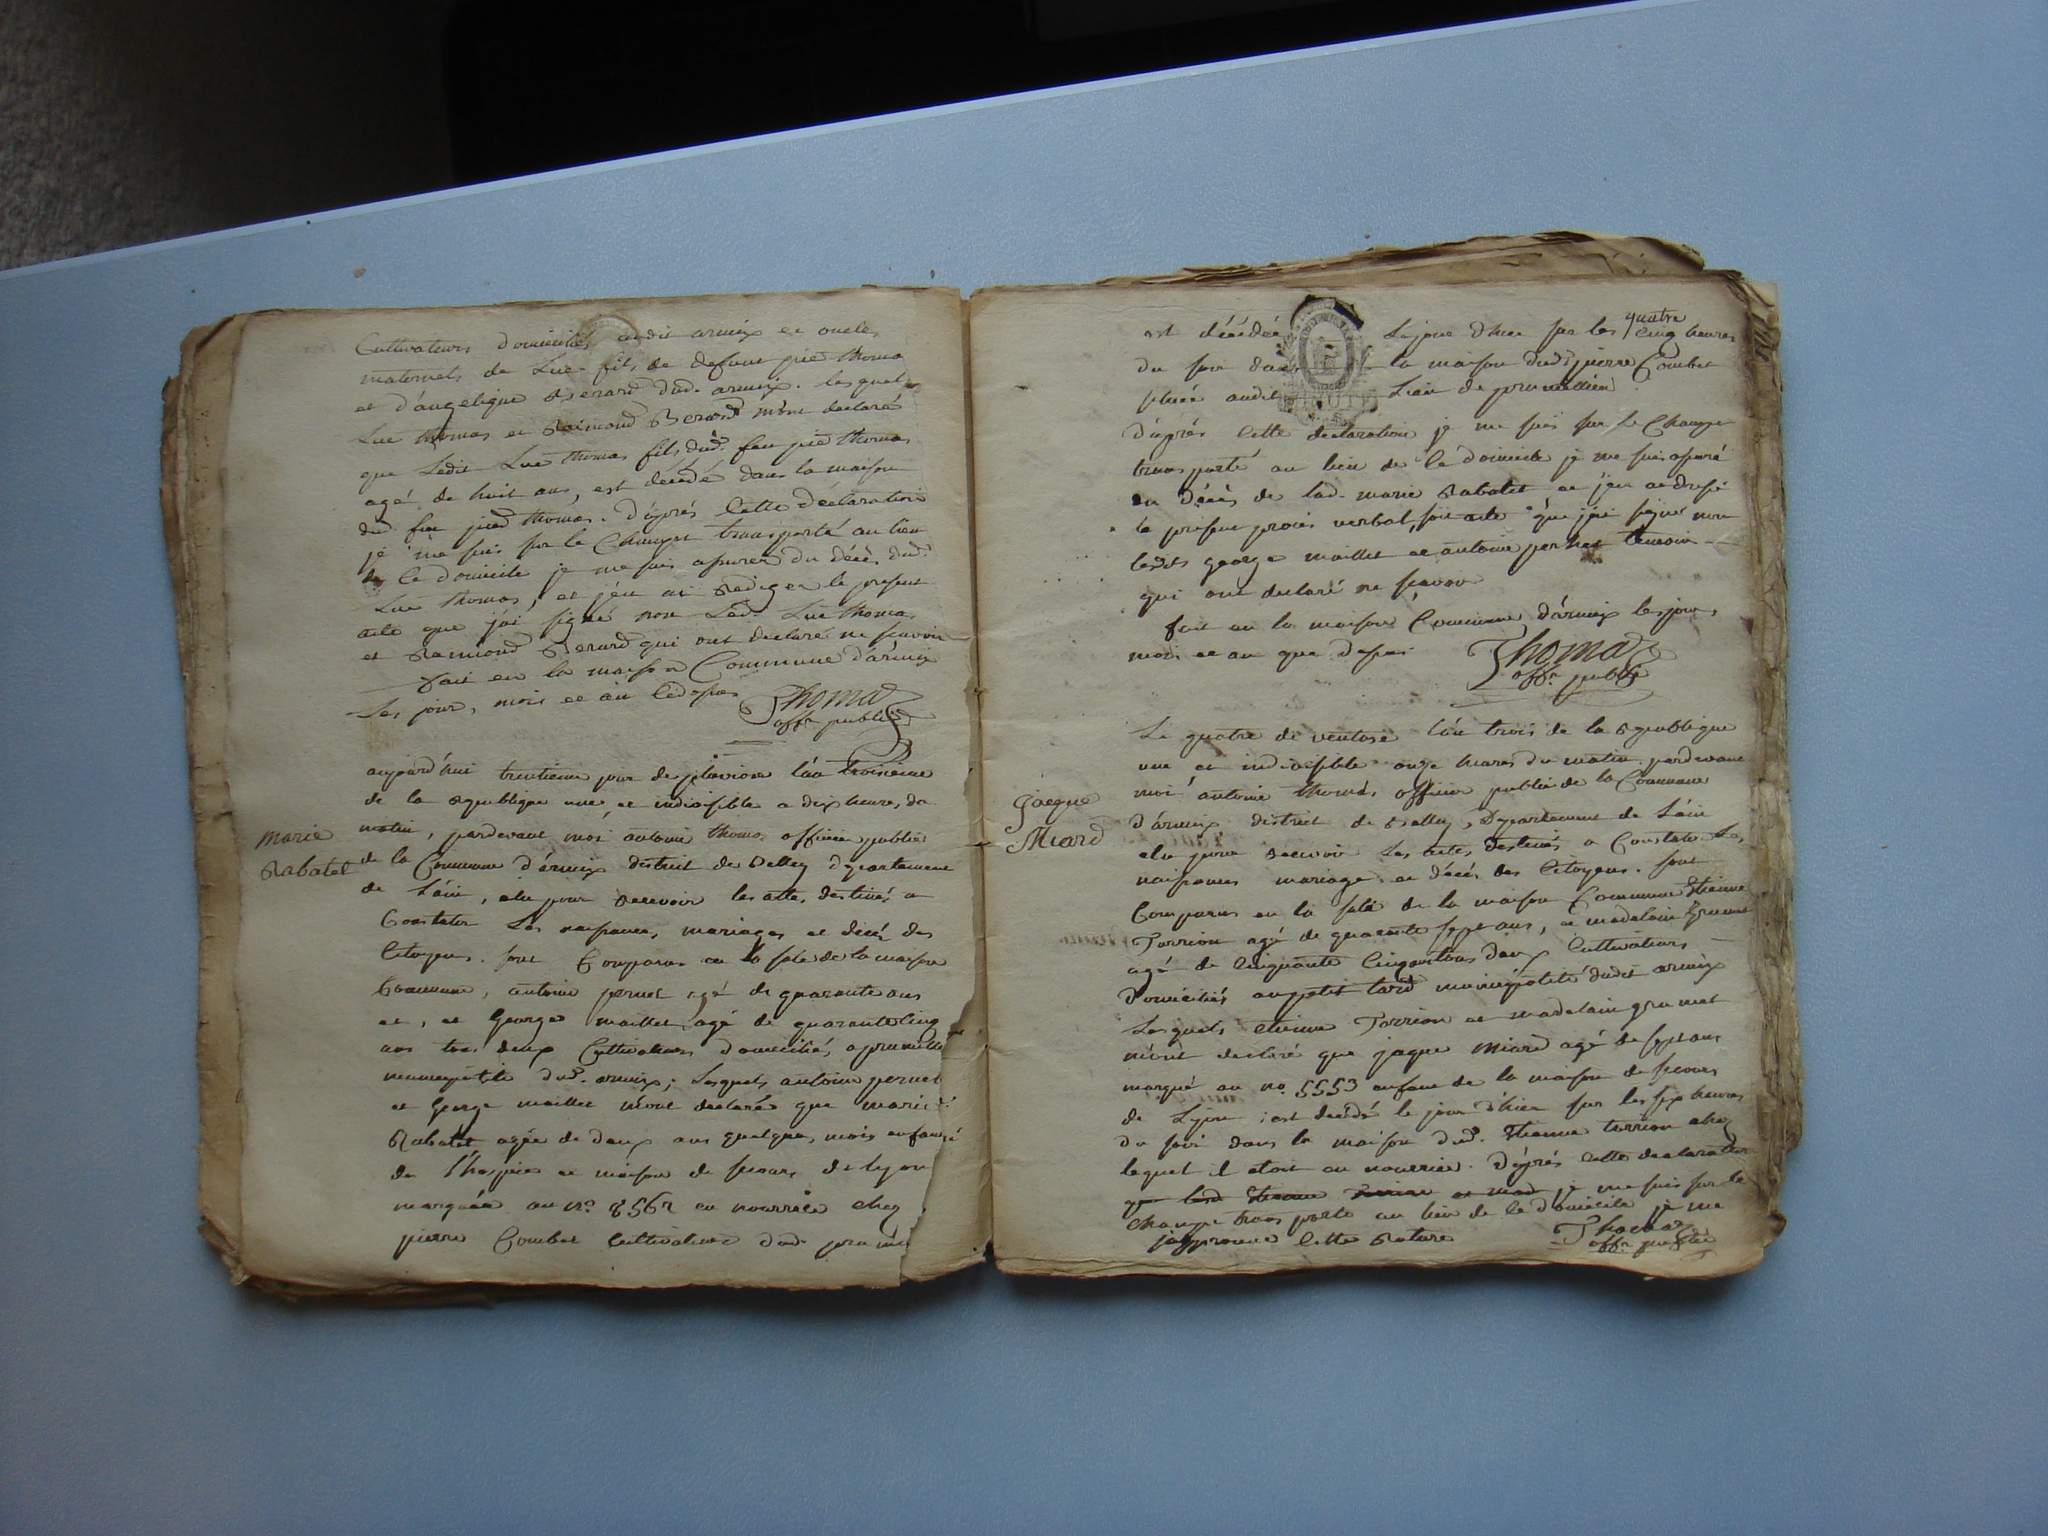 Cultivateurs domiciliés audit armix et oncles
maternels de Luc fils de defunt pierre thomas
et d'angelique Berard dud. armix. lesquels
Luc thomas et Raimond Berard m'ont declaré
que Ledit Luc thomas fils dud. feu pierre thomas
agé de huit ans, est décédé dans la maison
du feu pierre thomas. D'après cette déclaration
je me suis sur le Champt transporté au lieu
de ce domicile je me suis assurer du décès dud.
Luc thomas, et j'en ai Rediger le présent
acte que j'ai signé non Led. Luc thomas
et Raimond Berard qui ont declaré ne scavoir
fait en la maison Commune d'armix
les jour, mois et an cidessus
Thomas
offr. public
aujourd'hui trentieme jour de pluviose l'an troisieme
de la Republique une et indivisible a dix heures du
Marie
matin, pardevant moi antoine thomas officier public
Rabatet
de la Commune d'armix district de Belley departement
de L'ain, elu pour recevoir les actes destinés a
Constater Les naissances, mariages et décès des
Citoyens. sont Comparus en la sale de la maison
Commune, antoine pernet agé de quarante ans
et, et George maillet agé de quarante cinq
ans tous deux Cultivateurs domiciliés a prumillieu
municipalité dud. armix; Lesquels antoine pernet
et George maillet m'ont declarés que marie
Rabatet agée de deux ans quelques mois enfant
de l'hospice et maison de secours de lyon
marquée au no. 8562 en nourrice chez
pierre Combet Cultivateur dud.
est décédée Le jour d'hier sur les quatre cinq heures
du soir dans la maison dud. pierre Combet
placé audit Lieu de prumillieu
D'après cette declaration je me suis sur Le Champt
transporté au lieu de ce domicile je me suis assuré
du décès de lad. marie Rabatet et j'en ai dressé
le present procés verbal, soit acte que j'ai signé non
lesdits george maillet et antoine pernet temoin
qui ont declaré ne scavoir
fait en la maison Commune d'armix les jours,
mois et an que dessus
Thomas
offr. public
Le quatre de ventose l'an trois de la Republique
une et indivisible onze heures du matin, pardevant
Jacque
moi antoine thomas officier public de la Commune
Miard
d'armix district de Belley, Departement de L'ain
elu pour recevoir Les actes destinés a Constater Les
naissances mariages et décès des Citoyens. sont
Comparus en la sale de la maison Commune Etienne
Torrion agé de quarante sept ans, et madelain grumet
agé de Cinquante Cinq ans tous deux Cultivateurs
Domiciliés au petit tard municipalité dudit armix
Lesquels etienne Torrion et madelain grumet
m'ont declaré que jaque miard agé de sept ans
marqué au no. 5553 enfant de la maison de secours
de Lyon; est decédé le jour d'hier sur les six heures
du soir dans la maison dud. Etienne torrion chez
lequel il etoit en nourrice. D'après cette declaration
je me suis sur le
champt transporté au lieu de ce domicile je me
japprouve cette Rature
Thomas
offr. public